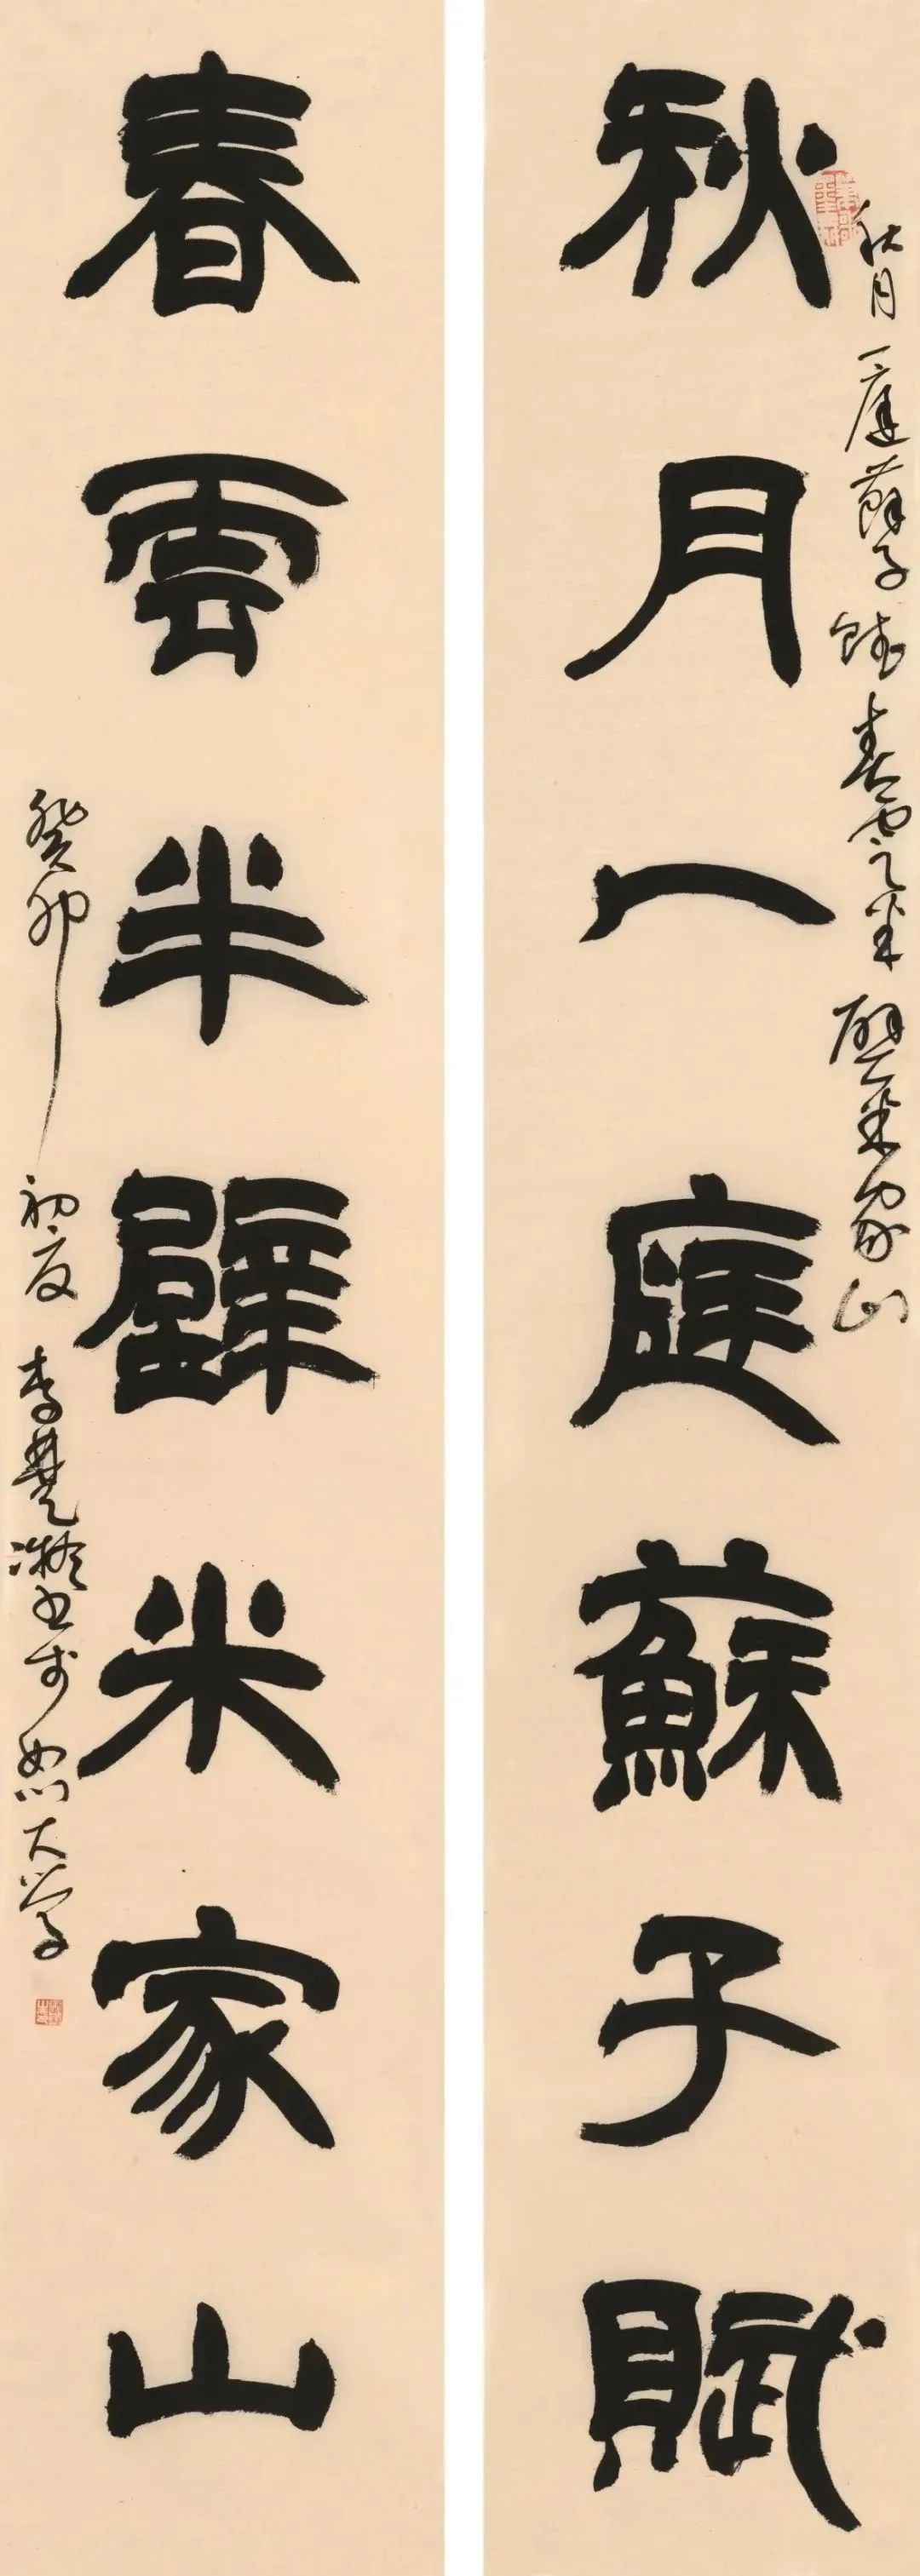 秋月一庭蘇子賦
秋月一庭蘇子賦春雲半壁米家山
春雲半壁米家山
癸卯初夏李楚凝書於四川大学